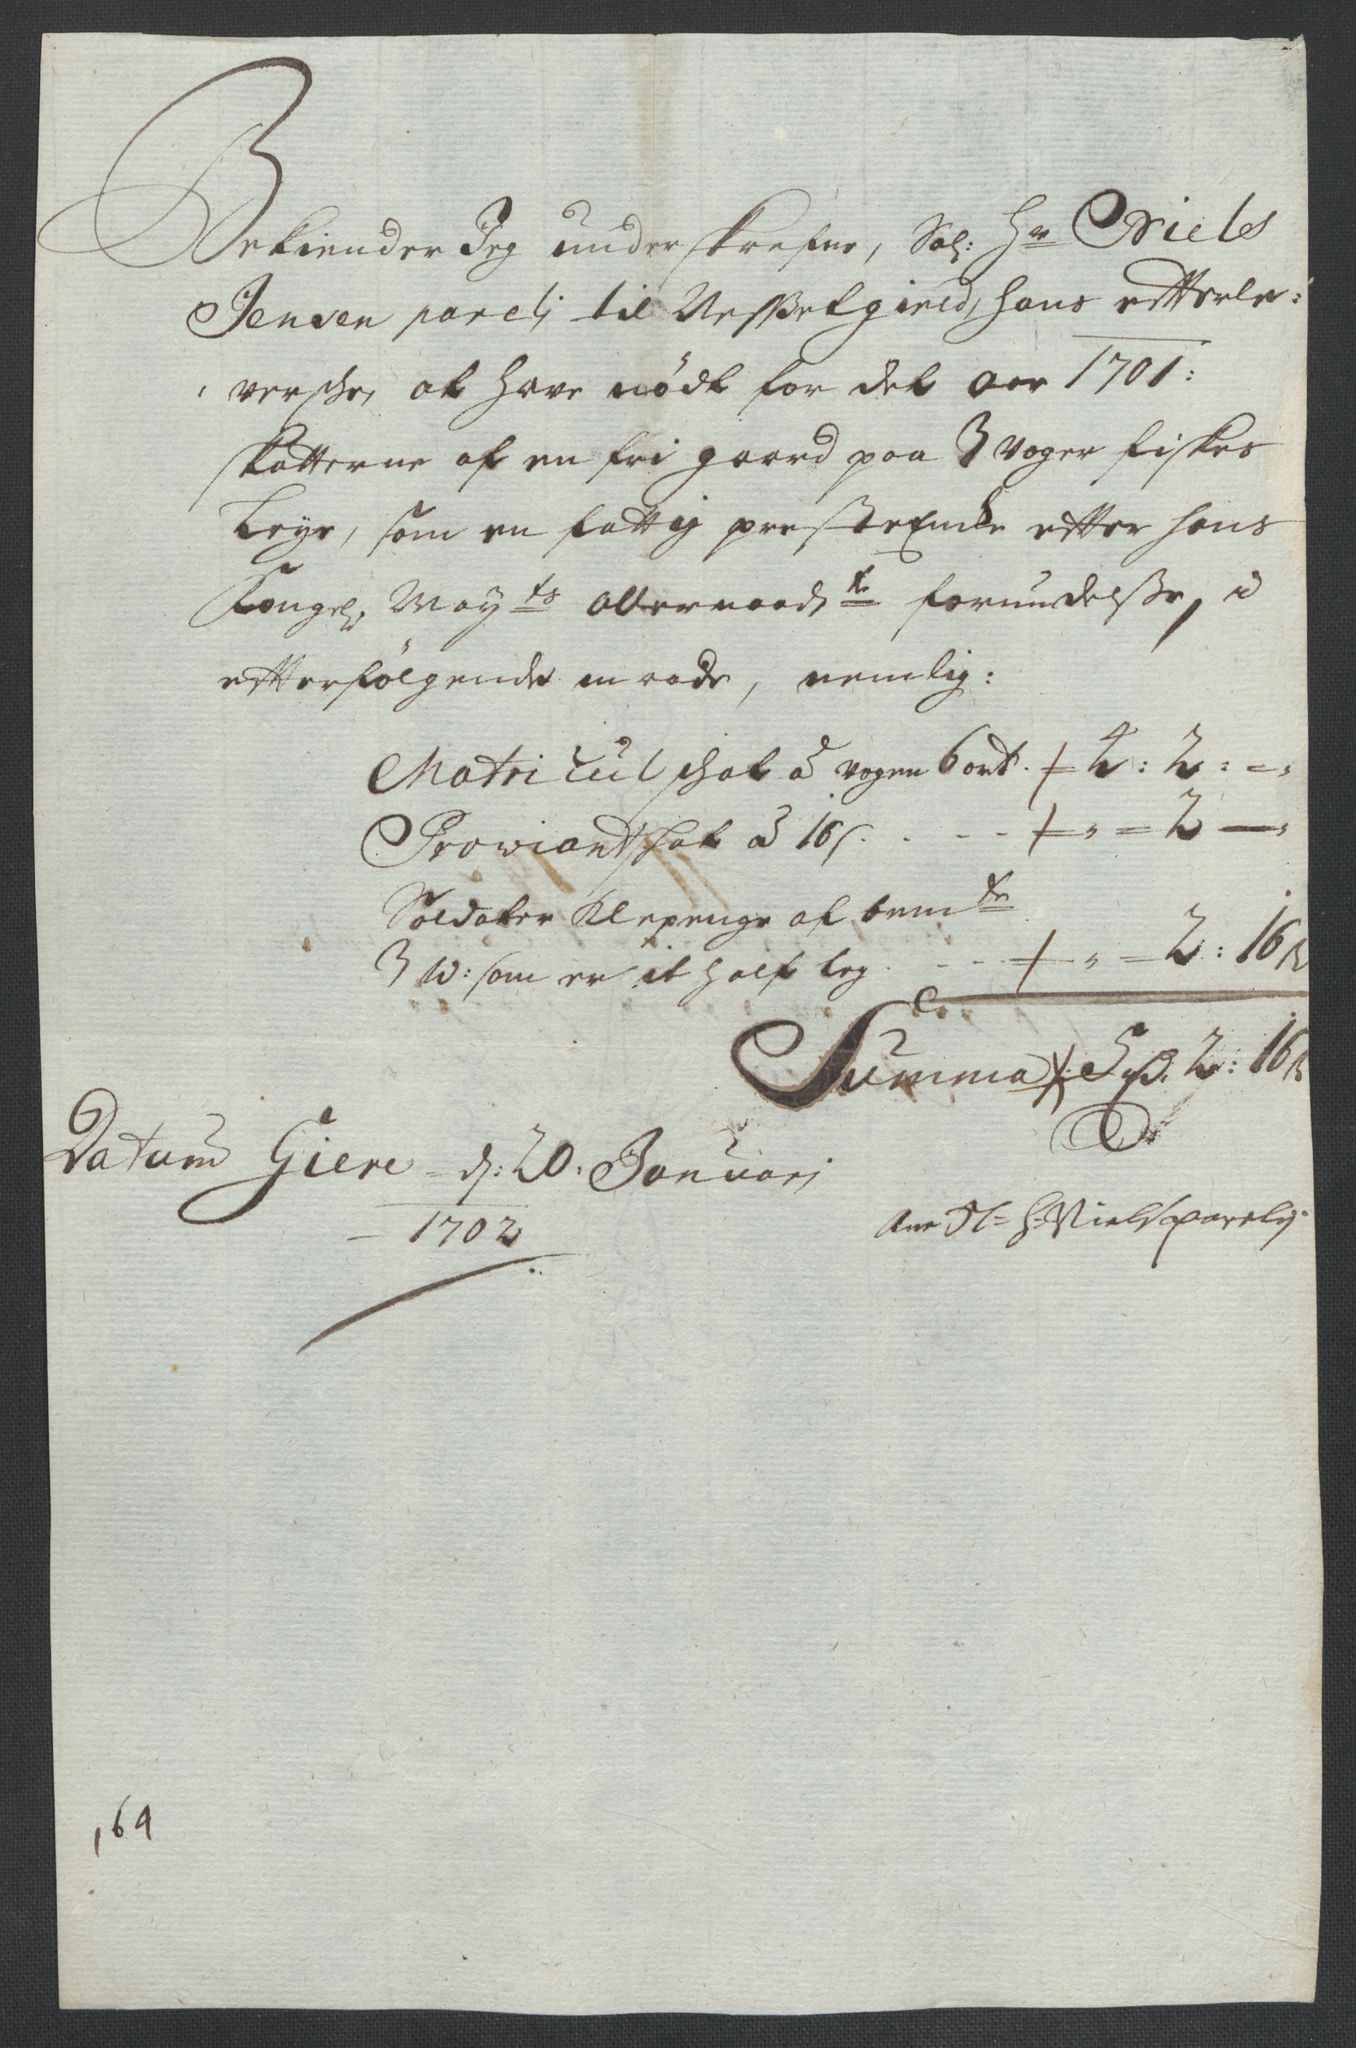 Bekiender Jeg underskrefne, Sal: Hr Niels
Jensen parelj til Nesset gield, hans effterle:
versche, at have nødt for det aar 1701:
skatterne af en fri gaard paa 3 voger fiskes
Leye, som en fattig presteEncke effter hans
Kongel: Mayts allernaadste forundelsse, i
effterfølgende maade, nemlig:
Matricul schat a vogen 6 ort. 4: 2: -
Proviant schat a 16 s. . - - 2 -
Soldater Klepenge af bemte
3 w: som er it half leg . - - 2: 16 s
Summa 5 rd. 2: 16 s
Datum Giere d: 20. Januarj
1702
Ane Sl: Hr Niels parelj
164